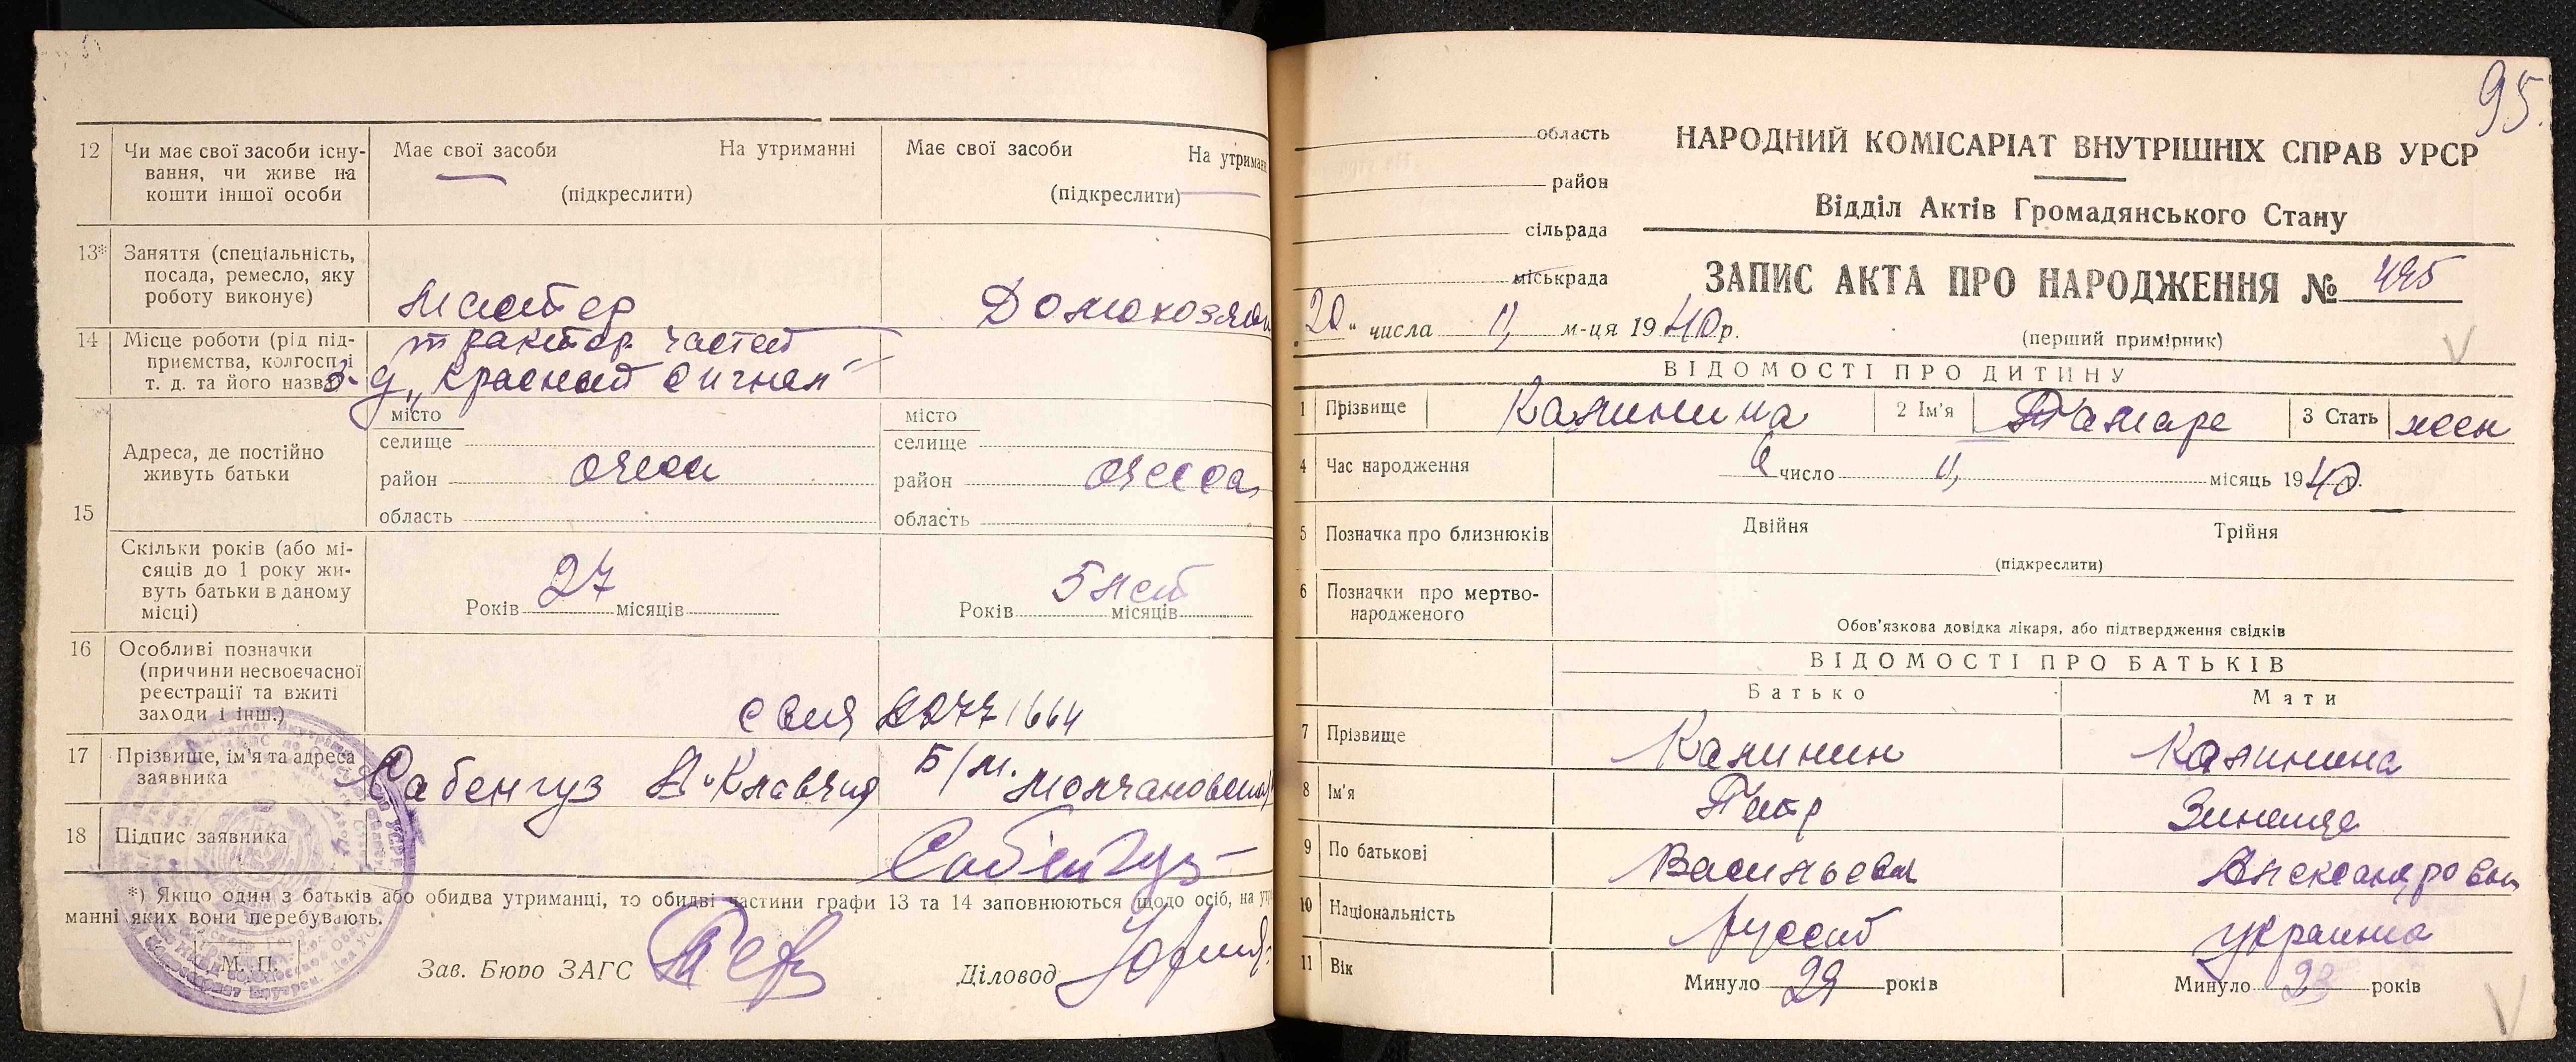 12 Чи має свої засоби існу-
вання, чи живе на
кошти іншої особи
Має свої засоби На утриманні
(підкреслити)
Має свої засоби На утриман
(підкреслити)
13* Заняття (спеціальність,
посада, ремесло, яку
роботу виконує)
Мастер
Домохозяй
14 Місце роботи (рід під-
приємства, колгосп і
т. д. та його назва)
трактор. частей
з-д „Красный Сигнал"
15 Адреса, де постійно
живуть батьки
місто
селище
район Одесса
область
місто
селище
район Одесса
область
Скільки років (або мі-
сяців до 1 року жи-
вуть батьки в даному
місці)
Років 27 місяців
Років 5 лет місяців
16 Особливі позначки
(причини несвоєчасної
реєстрації та вжиті
заходи і інш.)
17 Прізвище, ім'я та адреса
заявника
Сабенгуз Клавдия Б/м.
18 Підпис заявника
*) Якщо один з батьків або обидва утриманці, то обидві частини графи 13 та 14 заповнюються щодо осіб, на ут
манні яких вони перебувають.
М. П.
Зав. Бюро ЗАГС
Діловод
95.
область
район
сільрада
міськрада
НАРОДНИЙ КОМІСАРІАТ ВНУТРІШНІХ СПРАВ УРСР
Відділ Актів Громадянського Стану
ЗАПИС АКТА ПРО НАРОДЖЕННЯ №
20 „ числа 11, м-ця 1940 р.
(перший примірник)
ВІДОМОСТІ ПРО ДИТИНУ
1 Прізвище Калинина 2 Ім'я Тамара 3 Стать жен
4 Час народження число 11, місяць 1940 р.
5 Позначка про близнюків Двійня Трійня
(підкреслити)
6 Позначки про мертво-
народженого
Обов'язкова довідка лікаря, або підтвердження свідків
ВІДОМОСТІ ПРО БАТЬКІВ
Батько Мати
7 Прізвище Калинин Калинина
8 Ім'я Петр Зинаида
9 По батькові Васильев Александровн
10 Національність русский украинка
11 Вік Минуло 29 років Минуло 23 років